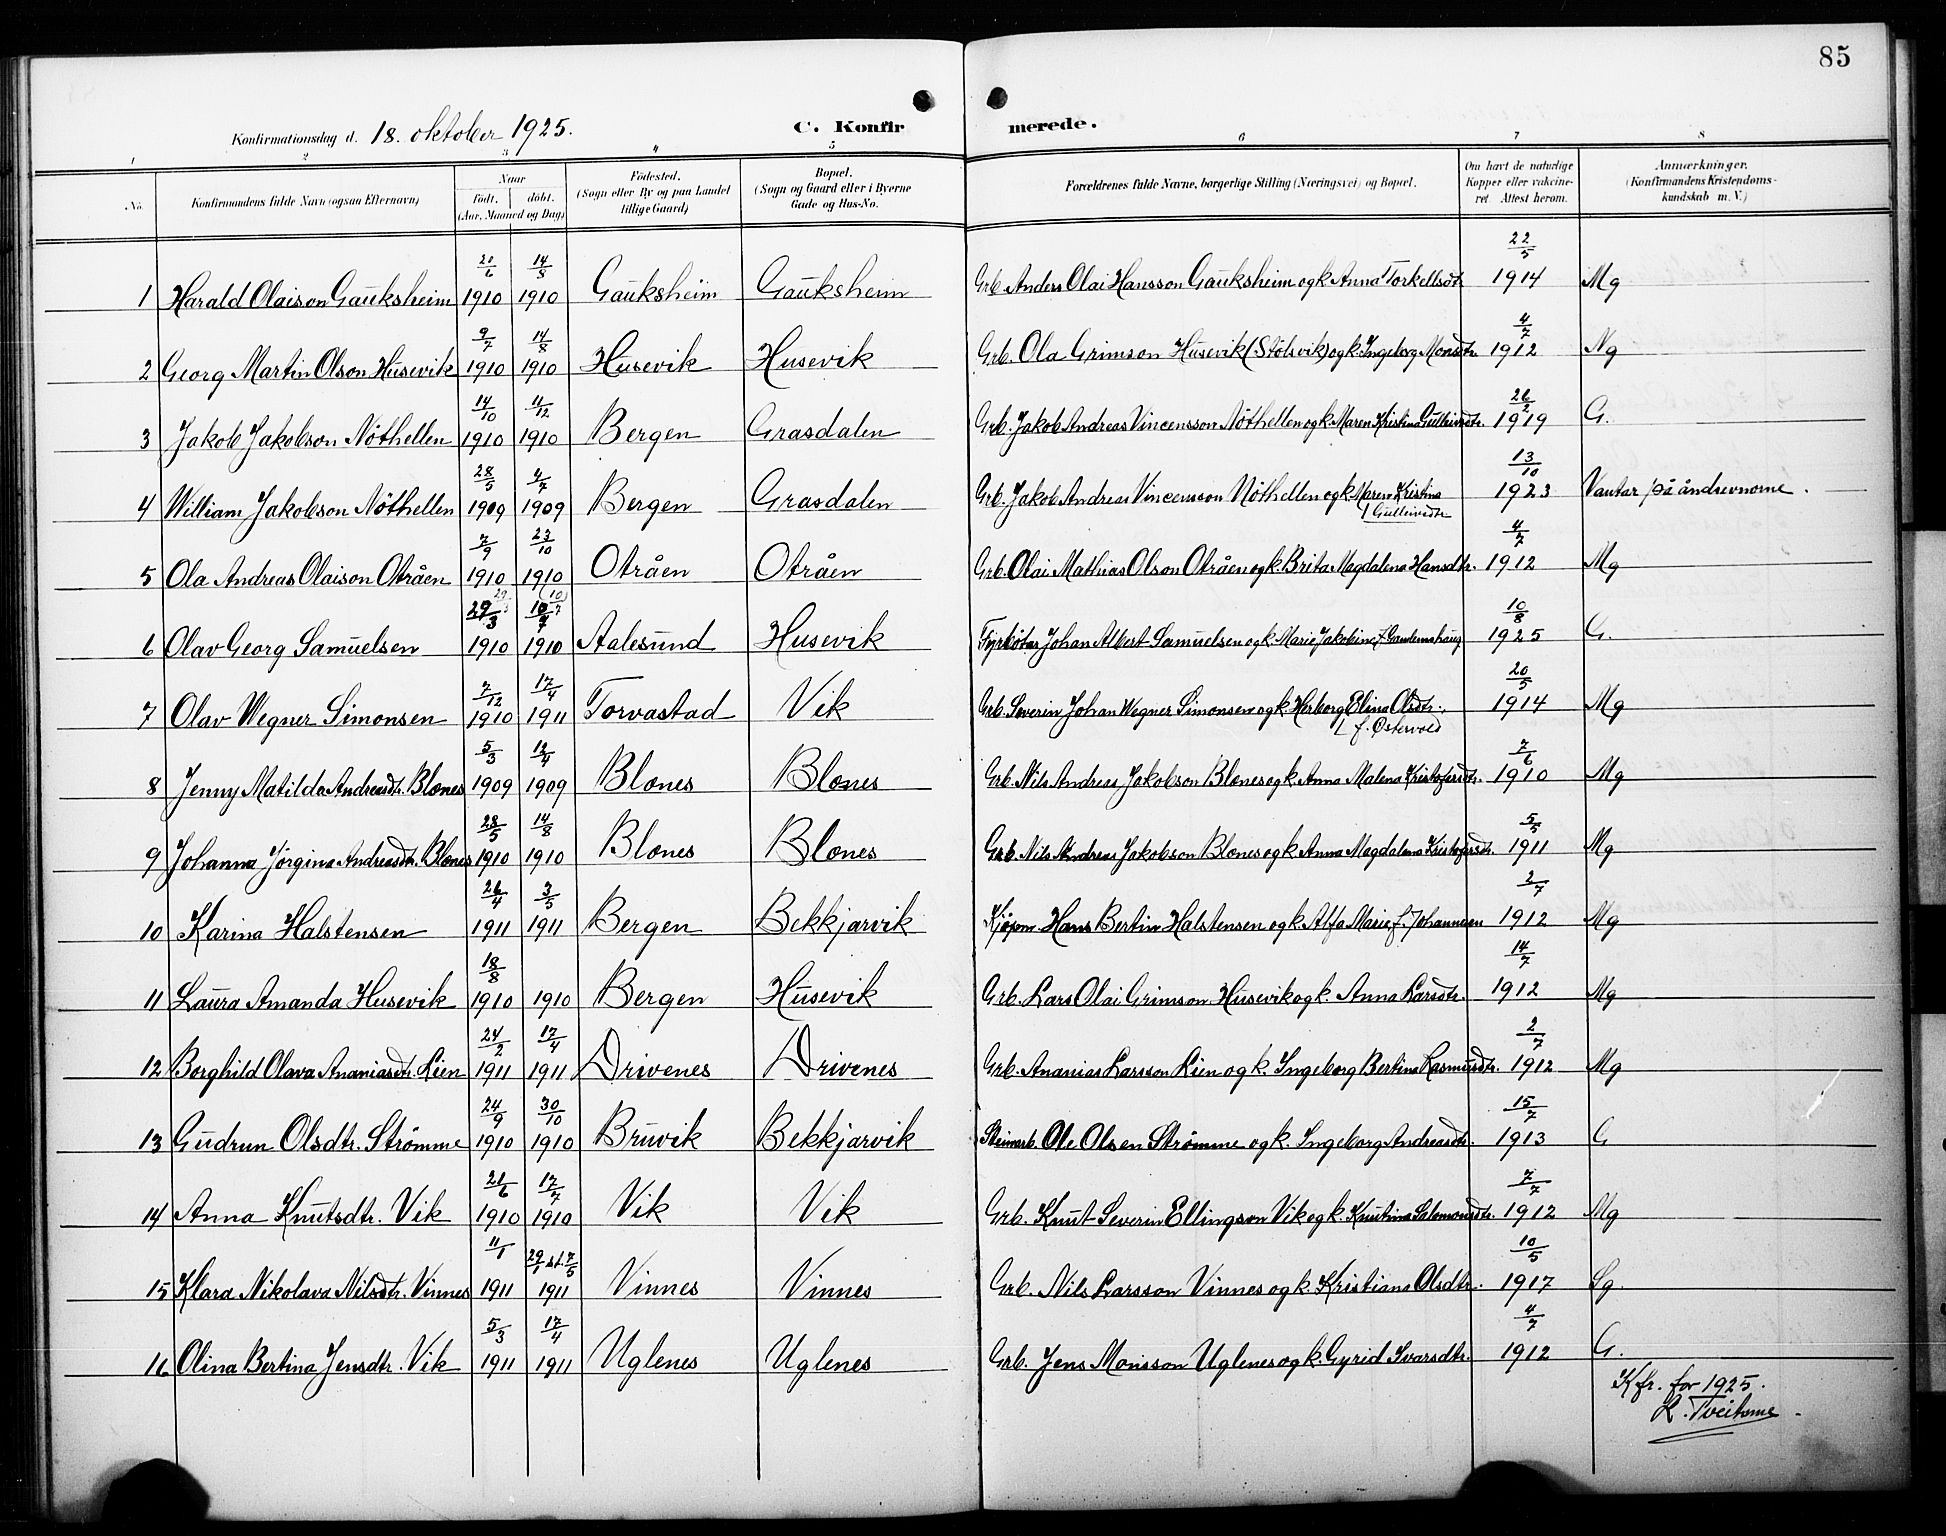 85
Konfirmationsdag d. 18. oktober 1925. C. Konfirmerede.
1 2 3 4 5 6 7 8
No. Konfirmandens fulde Navn (ogsaa Efternavn) Naar født. døbt. (Aar, Maaned og Dag) Fødested. (Sogn eller By og paa Landet tillige Gaard) Bopæl. (Sogn og Gaard eller i Byerne Gade og Hus-No. Forældrenes fulde Navne, borgerlige Stilling (Næringsvei) og Bopæl. Om havt de naturlige Kopper eller vakcineret. Attest herom. Anmærkninger. (Konfirmandens Kristendomskundskab m. V.)
1 Harald Olaison Gauksheim 20/6 1910 14/8 1910 Gauksheim Gauksheim Grb. Anders Olai Hansson Gauksheim og k. Anna Torkellsdtr. 22/5 1914 Mg
2 Georg Martin Olson Husevik 9/7 1910 14/8 1910 Husevik Husevik Grb. Ola Grimson Husevik (Stølsvik) og k. Ingeborg Monsdtr. 4/7 1912 Ng
3 Jakob Jakobson Nøthellen 14/10 1910 11/12 1910 Bergen Grasdalen Grb. Jakob Andreas Vincensson Nøthellen og k. Maren Kristina Gulleivsdtr. 26/2 1919 G.
4 William Jakobson Nøthellen 28/5 1909 4/7 1909 Bergen Grasdalen Grb. Jakob Andreas Vincensson Nøthellen og k. Maren Kristina Gulleivsdtr. 13/10 1923 Vantar på åndsevnorne.
5 Ola Andreas Olaison Otråen 7/9 1910 23/10 1910 Otråen Otråen Grb. Olai Mathias Olson Otråen og k. Brita Magdalena Hansdtr. 4/7 1912 Mg
6 Olav Georg Samuelsen 29/3 1910 10/7 1910 Aalesund Husevik Fyrbøtar Johan Albert Samuelsen og k. Marie Jakobine f. 10/8 1925 G.
7 Olav Wegner Simonsen 7/12 1910 17/4 1911 Torvastad Vik Grb. Severin Johan Wegner Simonsen og k. Herborg Elina Olsdtr. f. Østervold 20/5 1914 Mg
8 Jenny Matilda Andreasdtr. Blønes 5/3 1909 12/4 1909 Blønes Blønes Grb. Nils Andreas Jakobson Blønes og k. Anna Malena Kristofersdtr. 7/6 1910 Mg
9 Johanna Jørgina Andreasdtr. Blønes 28/5 1910 14/8 1910 Blønes Blønes Grb. Nils Andreas Jakobson Blønes og k. Anna Magdalena Kristofersdtr. 5/5 1911 Mg
10 Karina Halstensen 26/4 1911 3/5 1911 Bergen Bekkjarvik Kjøpm. Hans Bertin Halstensen og k. Alfa Marie f. Johannesen 2/7 1912 Mg
11 Laura Amanda Husevik 18/8 1910 1910 Bergen Husevik Grb. Lars Olai Grimson Husevik og k. Anna Larsdtr. 14/7 1912 Mg
12 Borghild Olava Ananiasdtr. Lien 24/2 1911 17/4 1911 Drivenes Drivenes Grb. Ananias Larsson Lien og k. Ingeborg Bertina Rasmusdtr. 2/7 1912 Mg
13 Gudrun Olsdtr. Strømme 24/9 1910 30/10 1910 Bruvik Bekkjarvik Steinarb. Ole Olsen Strømme og k. Ingeborg Andreasdtr. 15/7 1913 G
14 Anna Knutsdtr. Vik 21/6 1910 17/7 1910 Vik Vik Grb. Knut Severin Ellingson Vik og k. Knutina Salomonsdtr. 7/7 1912 Mg
15 Klara Nikolava Nilsdtr. Vinnes 11/1 1911 29/1 st. 7/5 1911 Vinnes Vinnes Grb. Nils Larsson Vinnes og k. Kristiana Olsdtr. 10/5 1917 Sg
16 Olina Bertina Jensdtr. Vik 5/3 1911 17/4 1911 Uglenes Uglenes Grb. Jens Monsson Uglenes og k. Gyrid Ivarsdtr. 4/7 1912 G.
Kfr. for 1925.
L. Tveitane